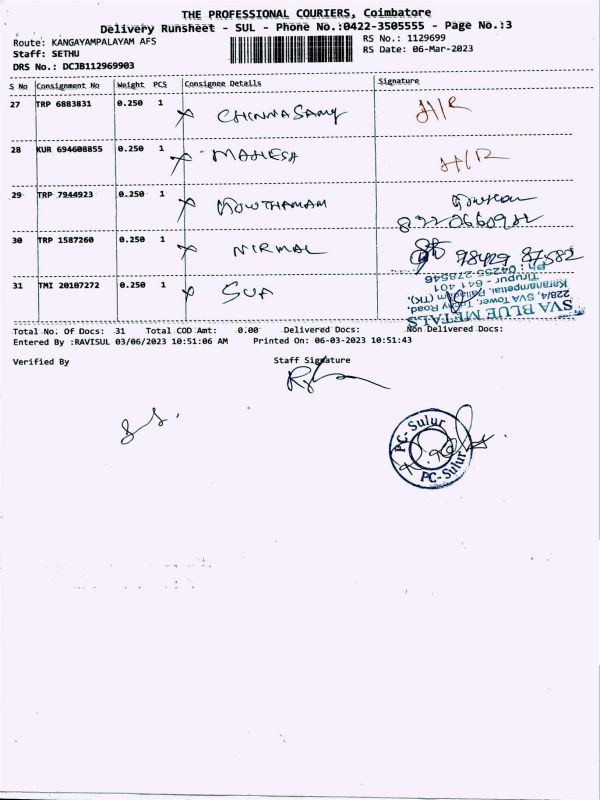 THE PROFESSIONAL COURIERS, Coimbatore
Delivery Runsheet - SUL - Phone No.:0422-3505555 - Page No.:3
Route: KANGAYAMPALAYAM AFS
RS No.: 1129699
Staff: SETHU
RS Date: 06-Mar-2023
DRS No.: DCJB112969903
S No Consignment No Weight PCS Consignee Details Signature
27 TRP 6883831 0.250 1 CHINNASAMY H/R
28 KUR 694608855 0.250 1 MAHESH H/R
29 TRP 7944923 0.250 1 GOWTHAMAM
30 TRP 1587260 0.250 1 NIRMAL 98429 87582
31 TMI 20107272 0.250 1 SVA
SVA BLUE METALS
228/4, SVA Tower, Trichy Road,
Karanampettai, Palladam (TK),
Tirupur - 641 401
Ph : 04255-278546
Total No. Of Docs: 31 Total COD Amt: 0.00 Delivered Docs: Non Delivered Docs:
Entered By :RAVISUL 03/06/2023 10:51:06 AM Printed On: 06-03-2023 10:51:43
Verified By Staff Signature
PC- Sulur
PC-Sulur